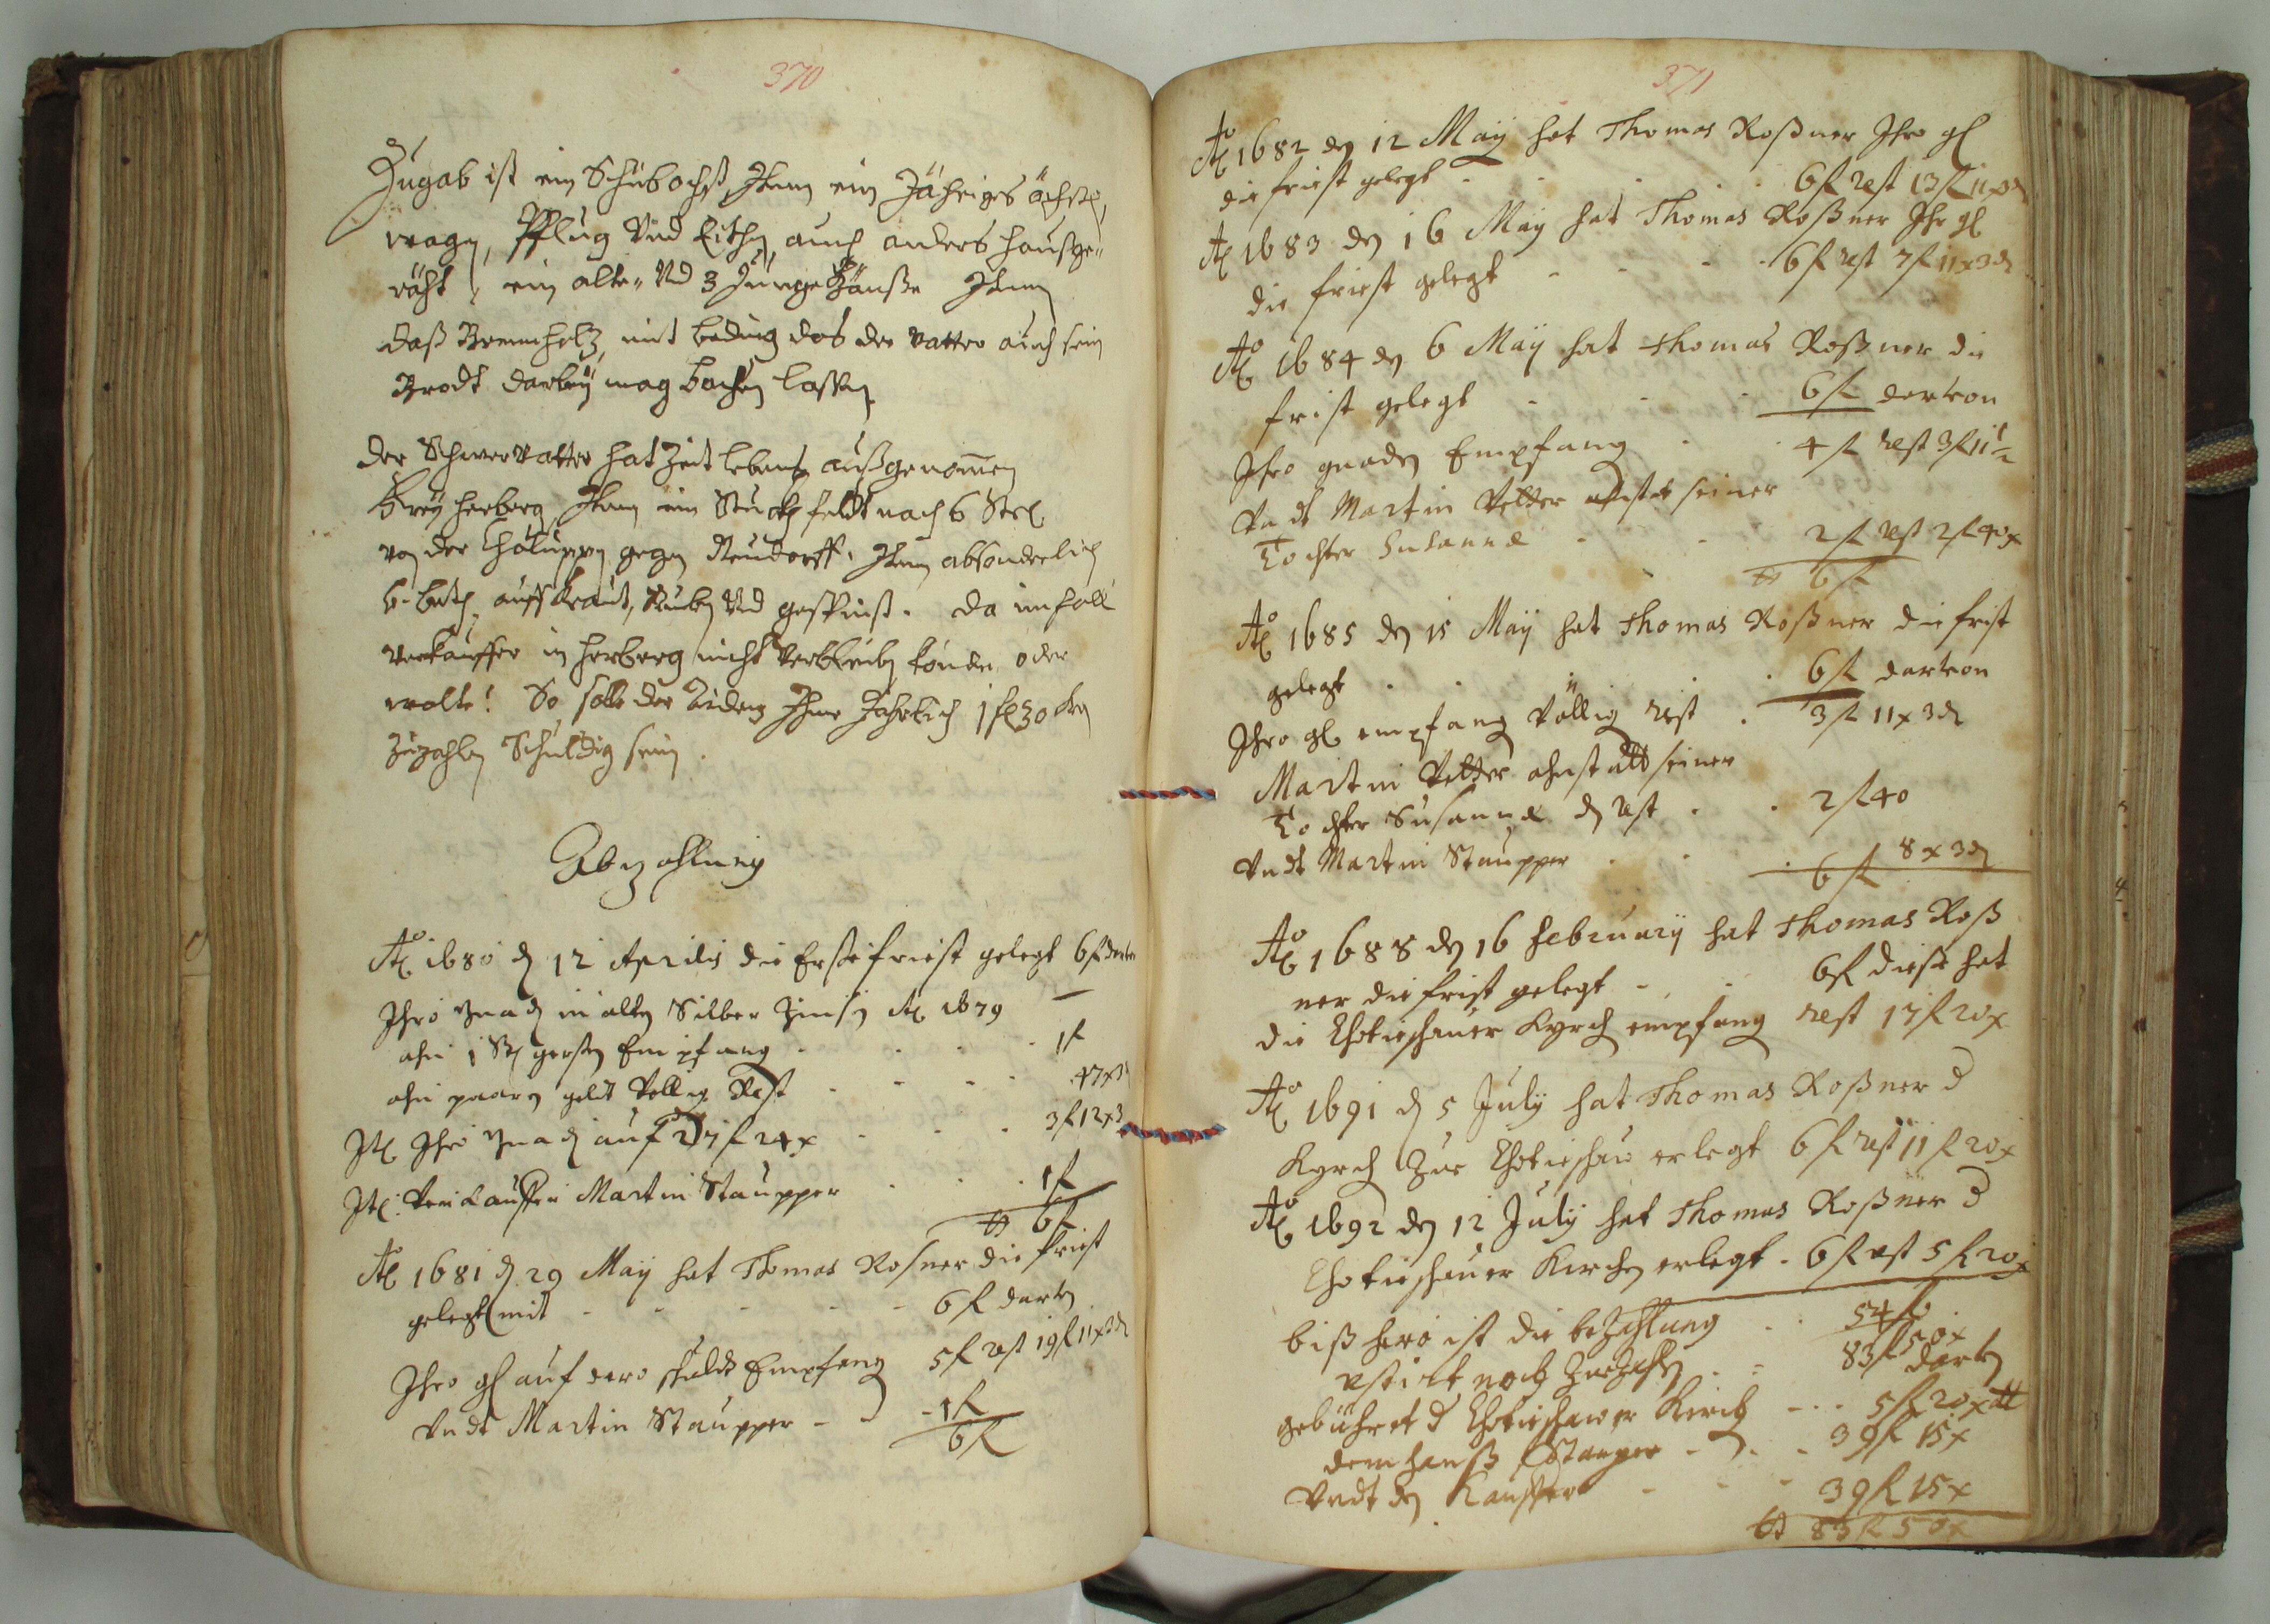 370
Zugab ist ein Schübochß, Item ein Jähriges öchßl,
wagn, Pflug Vnd Eithn, auch anders haußge„
räht, ein alte„ Vnd 3 Junge Gänße Item
daß Brennholtz, mit beding das der Vatter auch sein
Brodt darbeÿ mag bachen lassen.
der Schwervatter hat Zeit lebens außgenommen
freÿ herberg, Item ein Stuckh feldt nach 6 Str:
von der Chaluppn gegen Neudorff. Item absonderlich
6 beth auff Kraut, Ruebn Vnd gespünst. da im fall
Verkauffer in herberg nicht Verbleibn könde oder
wolte! So solle der Aidem Ihme Jahrlich 1 fl 30 Krn
Zuzahln Schuldig sein.
Abzahlung
Ao 1680 dn 12 Aprilis die Erste friest gelegt 6 fl darvon
Ihro Gnadn in altn Silber Zinsn Ao 1679
ahn 1 Str gerstn Empfang . . . . 1 fl
ahn paarn geldt Völlig Rest . . . . 47 x 3
It: Ihro Gnadn auf 27 fl 24 x . . . 3 fl 12 x 3
It: Verkauffern Martin Staupper . . . 1 fl
6 fl
Ao 1681 dn 29 Maÿ hat Thomas Rosner die friest
gelegt mit - - - - - 6 fl darvon
Ihro gl auf dero schuldt Empfang 5 fl rest 19 fl 11 x 3 d
Vndt Martin Staupper - - 1 fl
6 fl
371
Ao 1682 dn 12 Maÿ hat Thomas Roßner Ihro gl
die friest gelegt . . . . 6 fl rest 13 fl 11 x 3 d
Ao 1683 dn 16 Maÿ hat Thomas Roßner Ihr gl
die friest gelegt - - - - 6 fl rest 7 fl 11 x 3 d
Ao 1684 dn 6 Maÿ hat Thomas Roßner die
frist gelegt - - - 6 fl darvon
Ihro gnadn Empfang . . 4 fl rest 3 fl 11
Vndt Martin Vetter anstat seiner
Tochter Susanna - - - 2 fl rest 2 fl 40 x
6 fl
Ao 1685 dn 15 Maÿ hat Thomas Roßner die frist
gelegt . . . . 6 fl darvon
Ihro gl. empfang Völlig rest . 3 fl 11 x 3 d
Martin Vetter ahnstatt seiner
Tochter Susanna dn rest . . 2 fl 40
Vndt Martin Staupper . . . 8 x 3 d
6 fl
Ao 1688 dn 16 February hat Thomas Roß
ner die frist gelegt - . - 6 fl diese hat
die Chotieschauer Kyrch empfang rest 17 fl 20 x
Ao 1691 dn 5 Julÿ hat Thomas Roßner d
Kyrch Zue Chotieschau erlegt 6 fl rest 11 fl 20 x
Ao 1692 dn 12 Julÿ hat Thomas Roßner d
Chotieschauer Kirchn erlegt - 6 fl rest 5 fl 20 x
biß hero ist die bezahlung . . 54 fl
restirt noch Zuezahln . . - 83 fl 50 x
darvon
gebühret d Chotieschawer Kirch - . . 5 fl 20 x
dem hanß Stauper - . . - 39 fl 15 x
Vndt dn Kauffer - - - 39 fl 15 x
83 fl 50 x